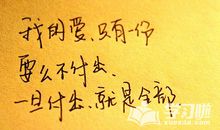 我的爱,只有一份
要么不付出,
一旦付出,就是全部
学习啦